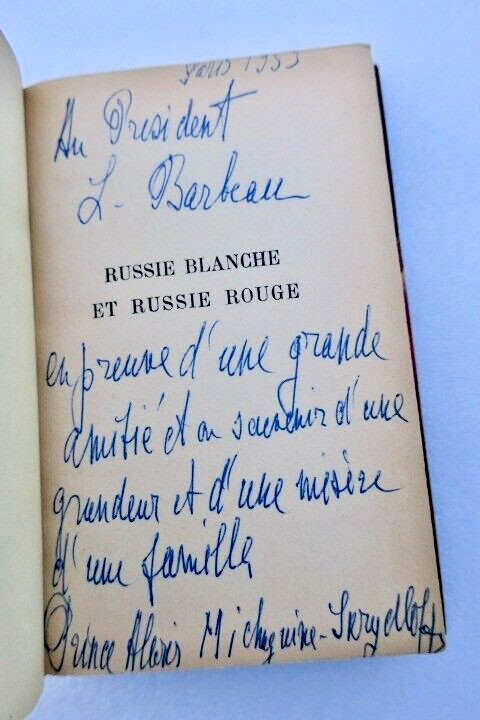 Paris 1953
Au President
L- Barbeau
RUSSIE BLANCHE
ET RUSSIE ROUGE
en preuve d'une grande
amitié et en souvenir d'une
grandeur et d'une misère
d'une famille
Prince Alexis